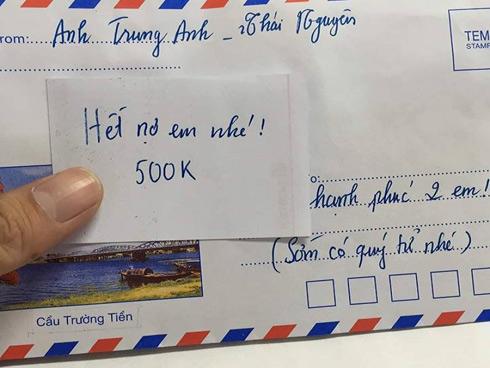 From: Anh Trung Anh - Thái Nguyên
TEM
STAMP
Hết nợ em nhé!
500K
o:
hạnh phúc 2 em!
(Sớm có quý tử nhé)
Cầu Trường Tiền